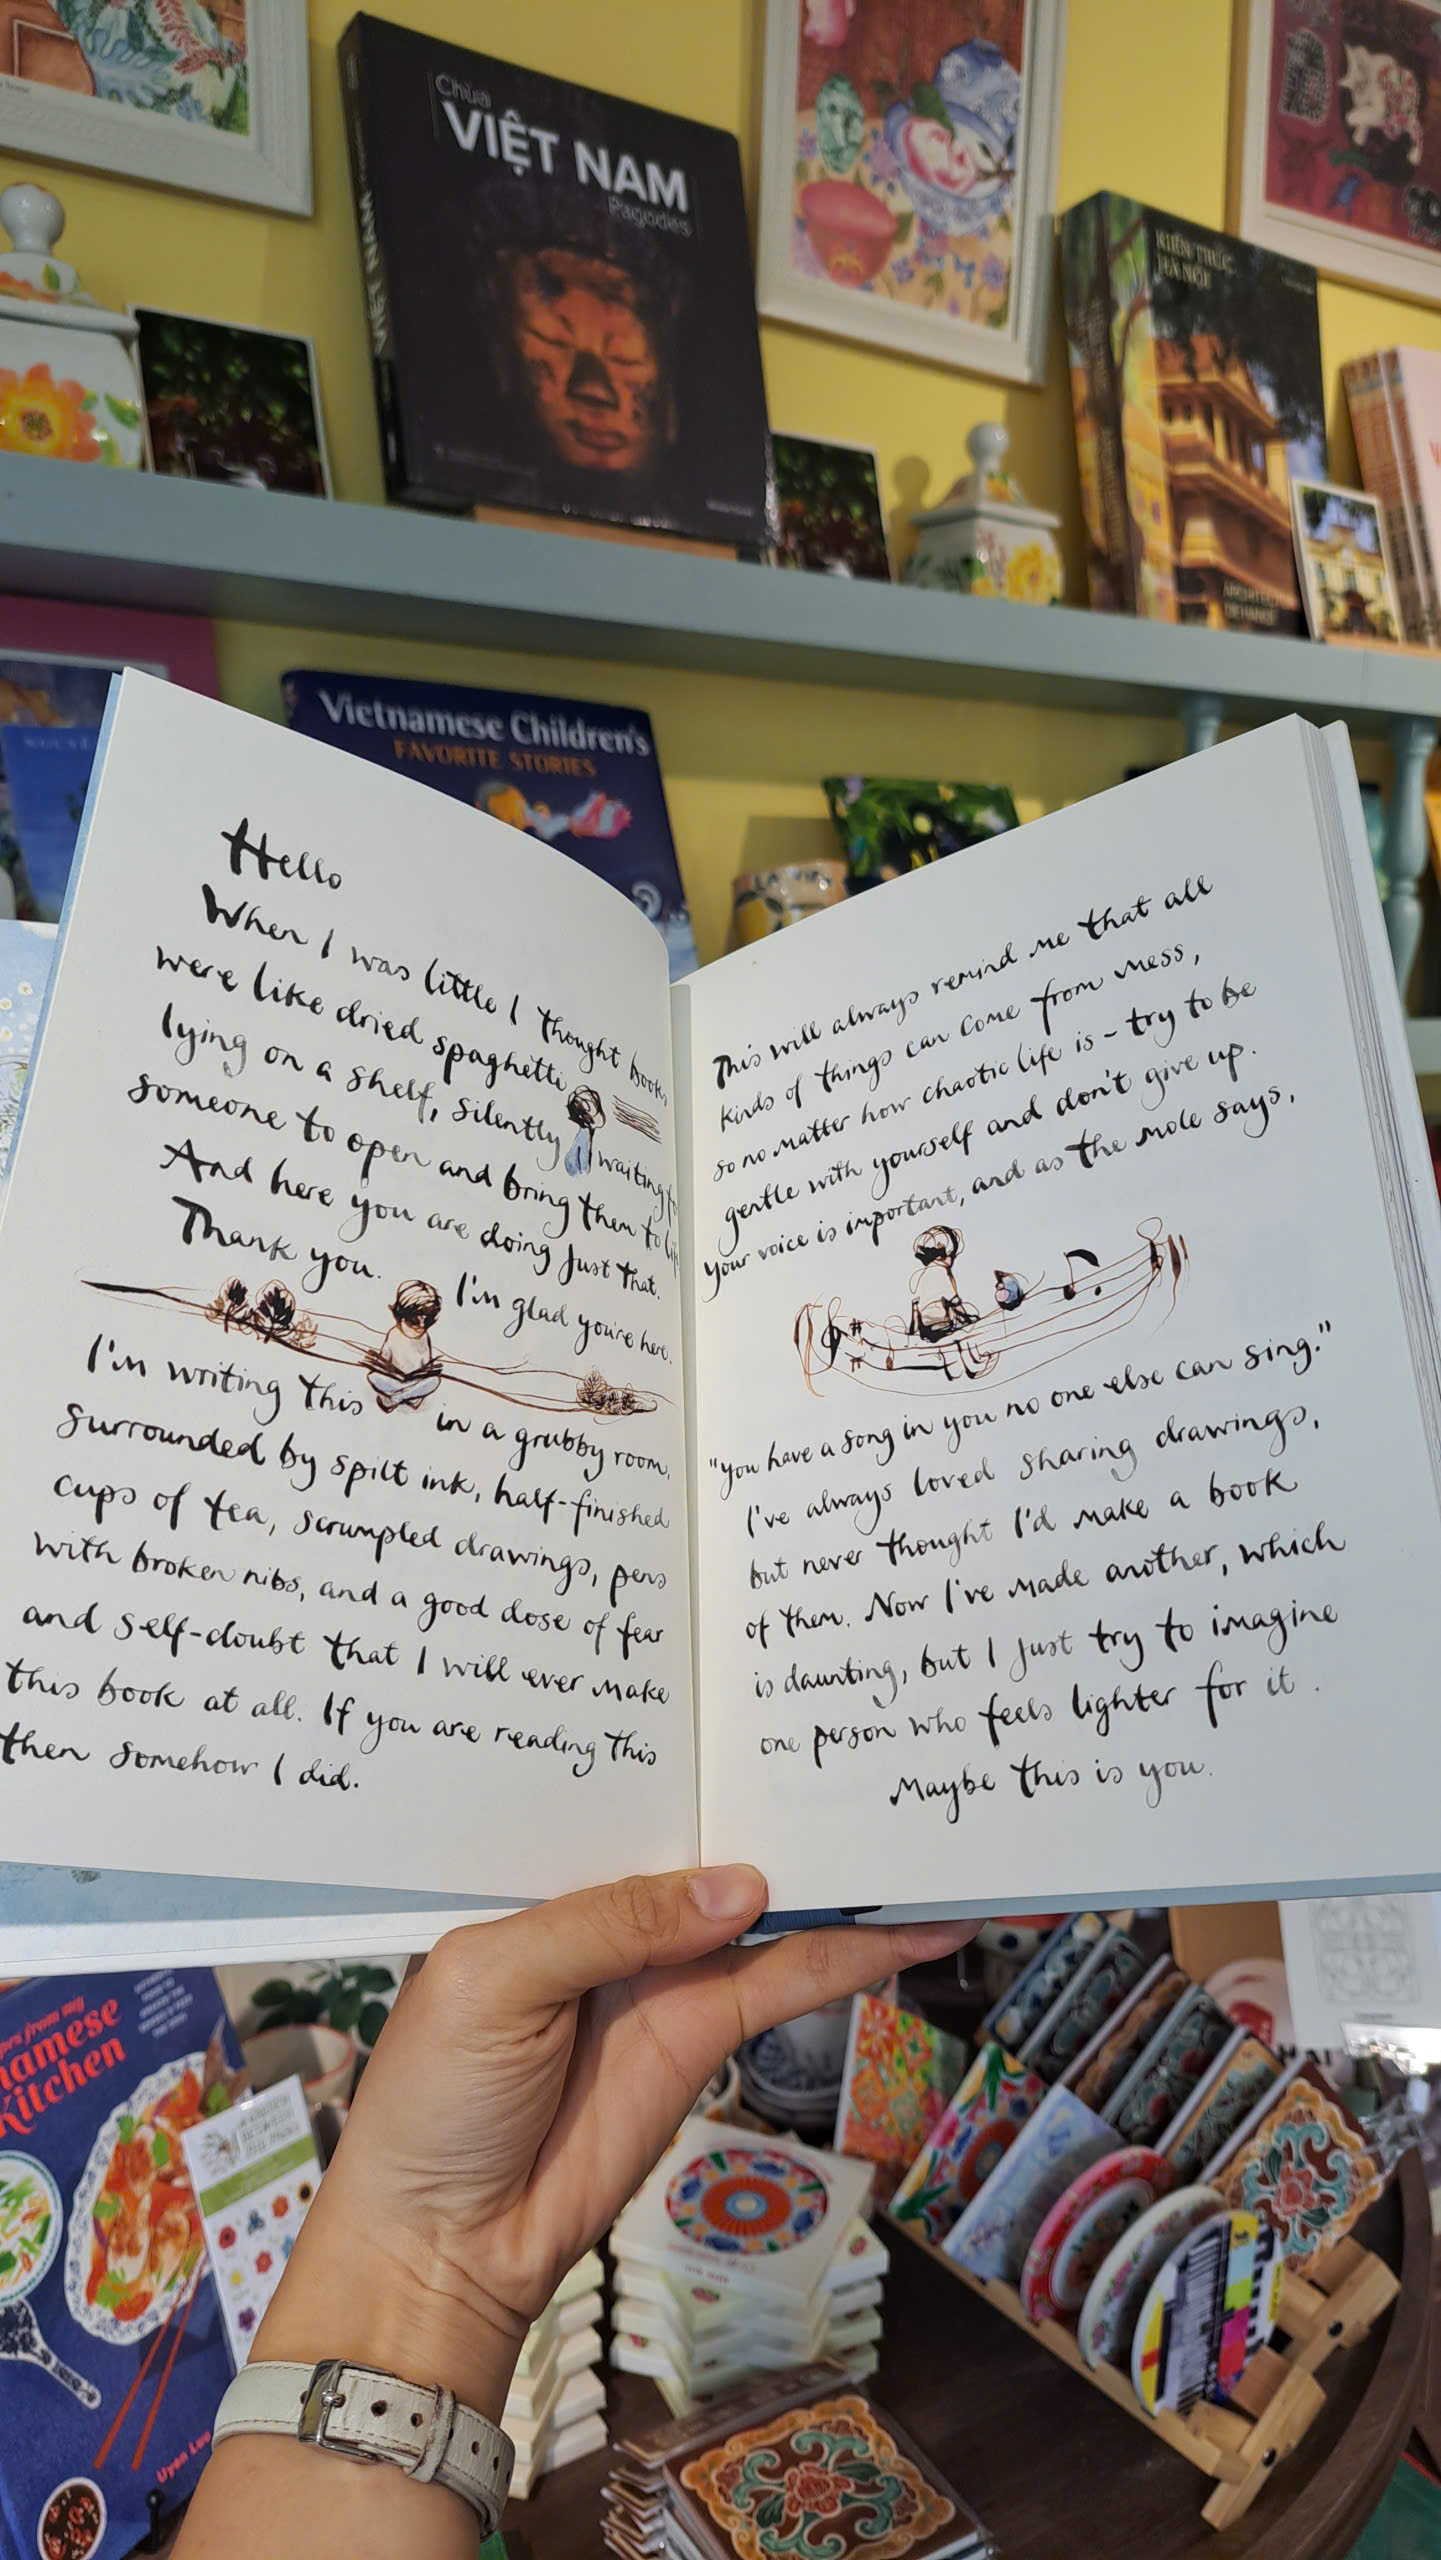 Chùa
VIỆT NAM
Pagodes
VIỆT NAM
KIẾN TRÚC
HÀ NỘI
Vietnamese Children's
FAVORITE STORIES
Hello
When I was little I thought books
were like dried spaghetti
lying on a shelf, silently waiting
someone to open and bring them to
And here you are doing just that.
Thank you.
I'm glad you're here.
I'm writing this in a grubby room,
surrounded by spilt ink, half-finished
cups of tea, scrumpled drawings, pens
with broken nibs, and a good dose of fear
and self-doubt that I will ever make
this book at all. If you are reading this
then somehow I did.
This will always remind me that all
kinds of things can come from mess,
so no matter how chaotic life is - try to be
gentle with yourself and don't give up.
Your voice is important, and as the mole says,
"You have a song in you no one else can sing."
I've always loved sharing drawings,
but never thought I'd make a book
of them. Now I've made another, which
is daunting, but I just try to imagine
one person who feels lighter for it.
Maybe this is you.
from my
namese
Kitchen
Uyen Luu